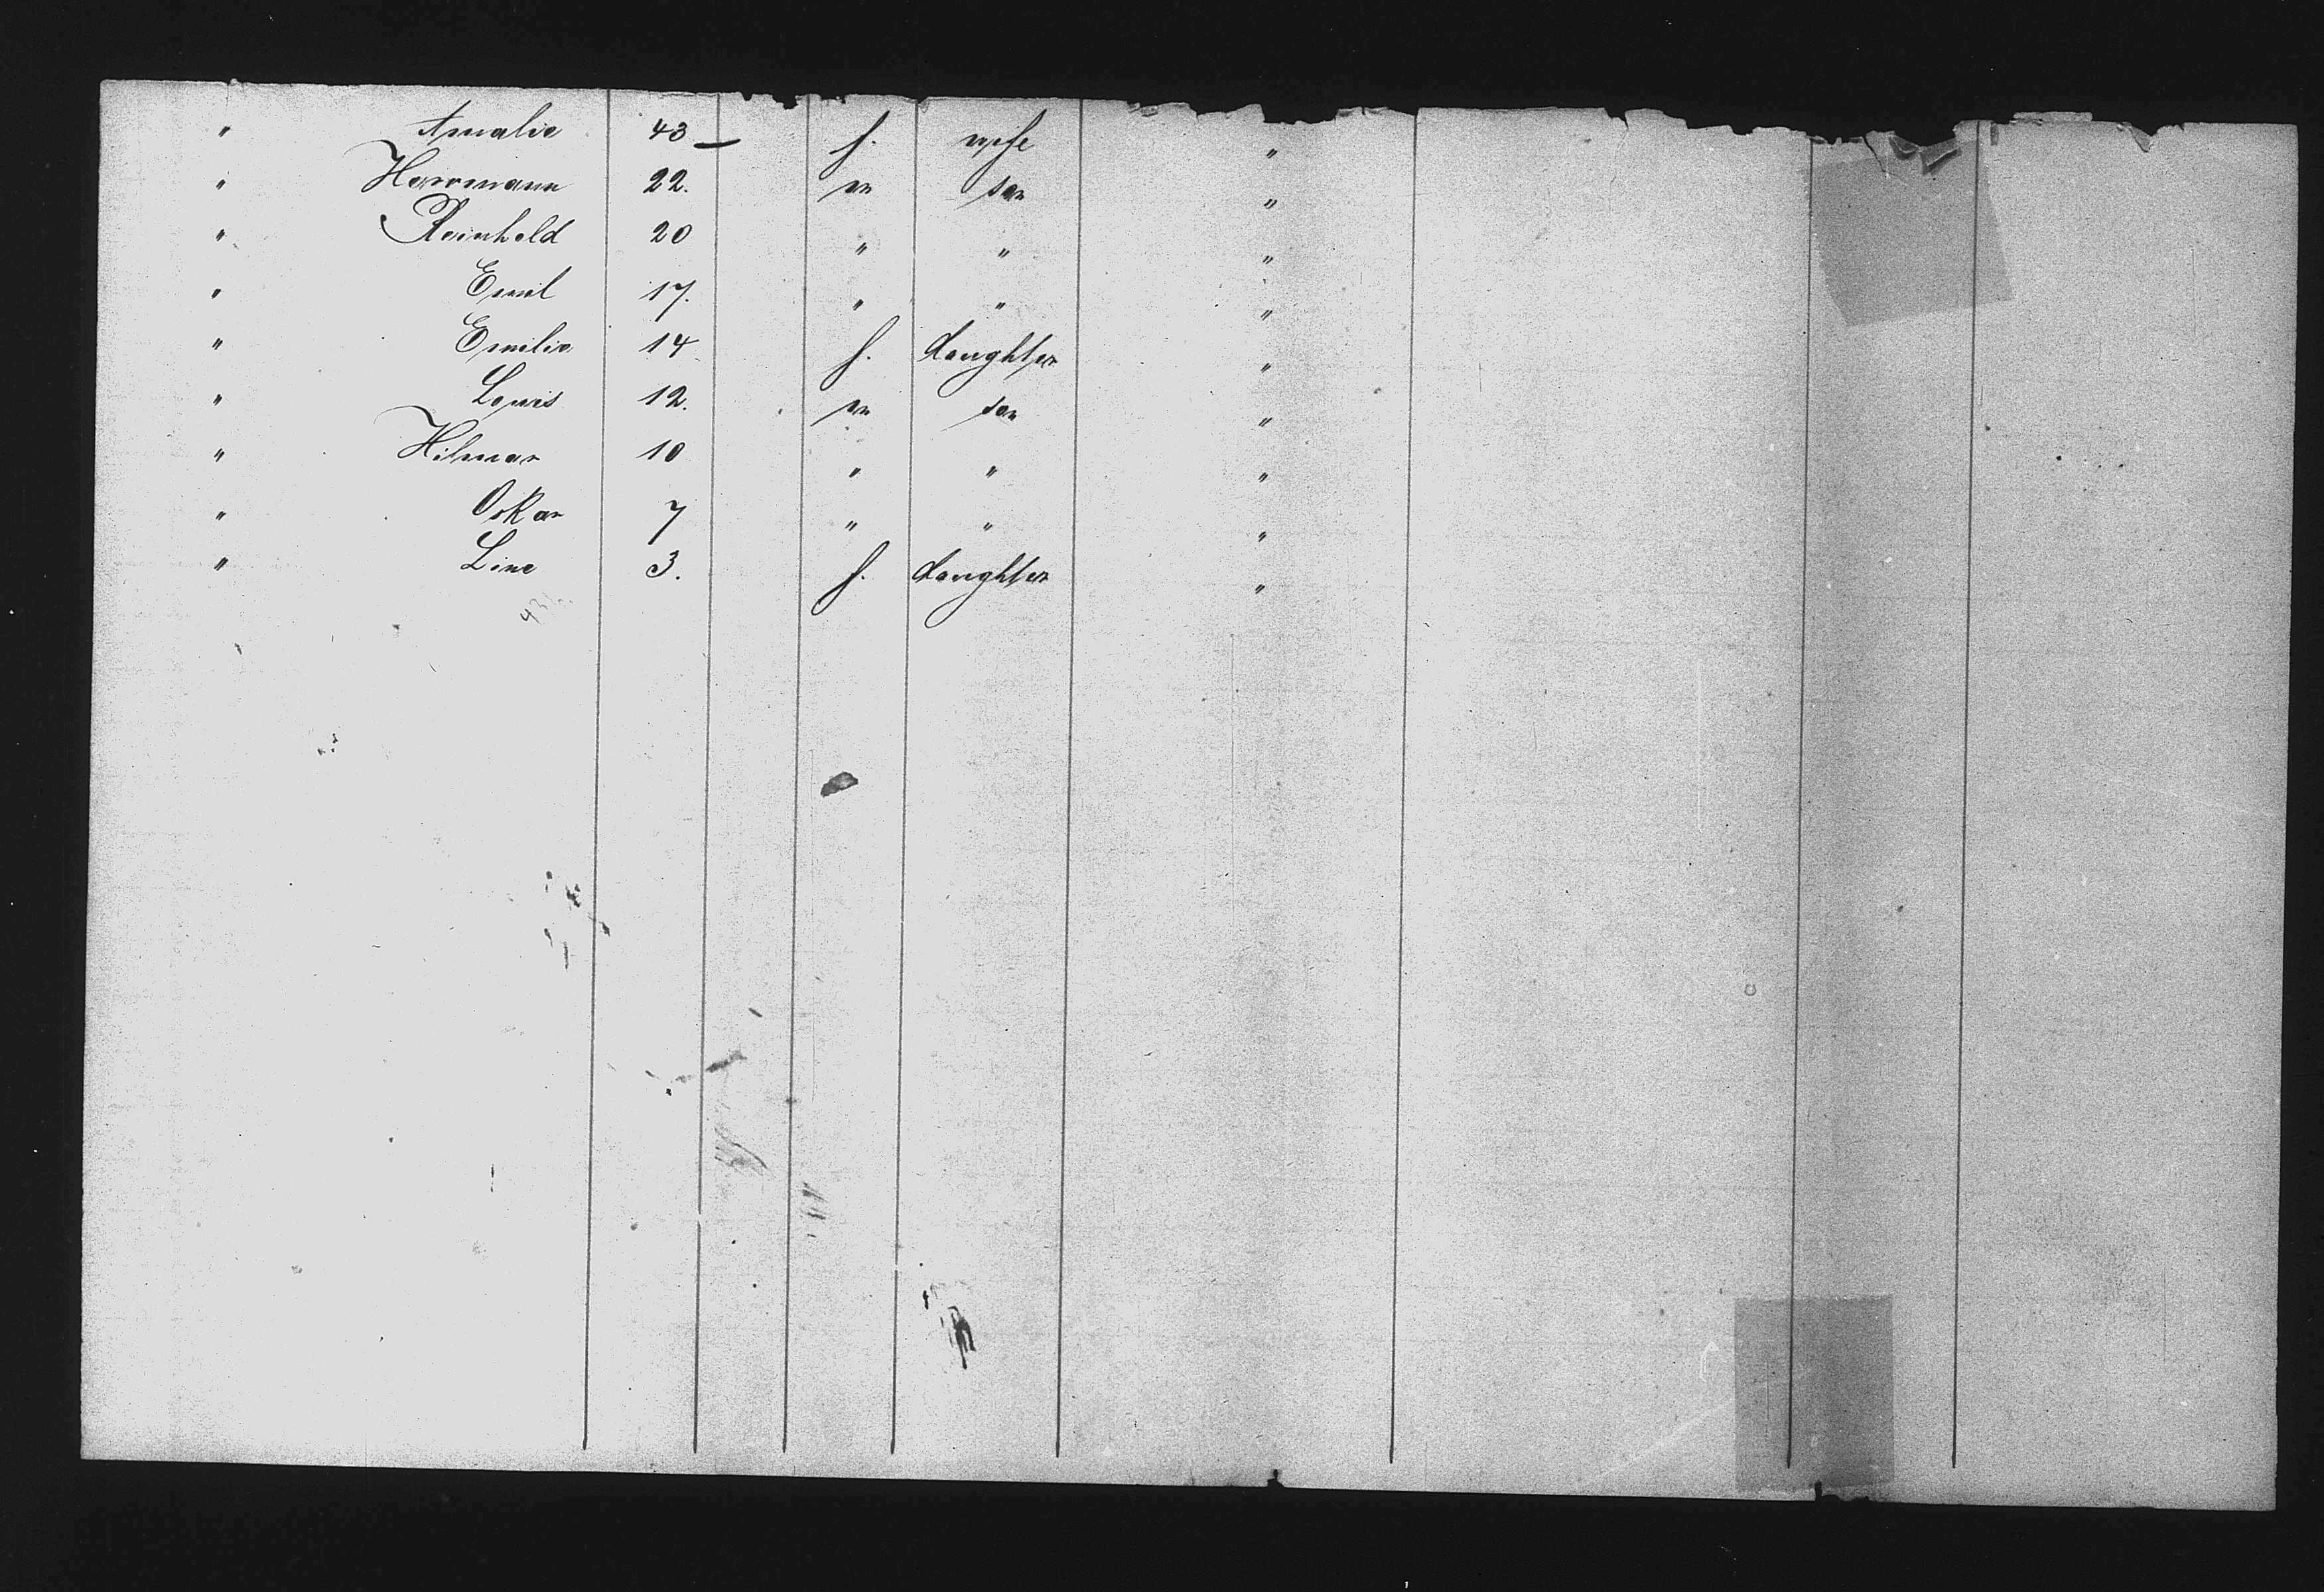 " Amalie 43 — f. wife "
" Herrmann 22. m son "
" Reinhold 20 " " "
" Emil 17. " " "
" Emilie 14 f. daughter "
" Louis 12. m son "
" Hilmar 10 " " "
" Oskar 7 " " "
" Line 3. f. daughter "